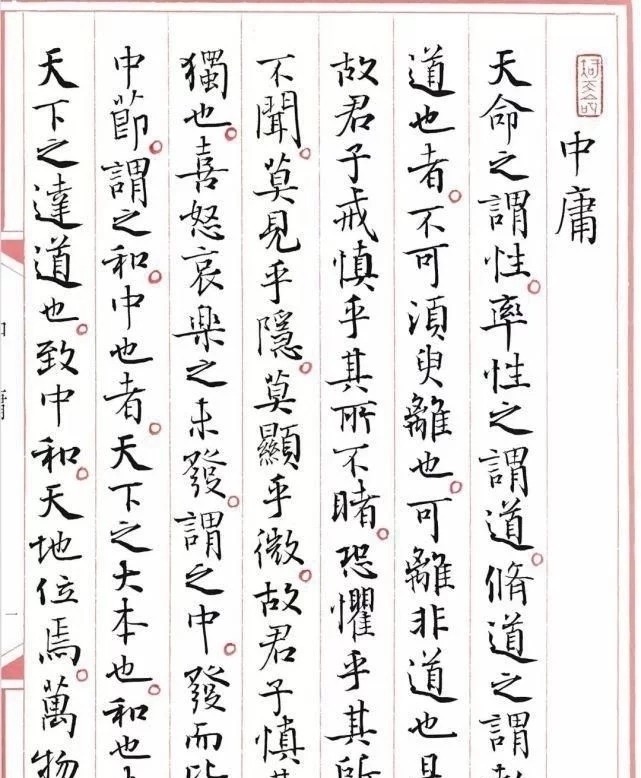 中庸
天命之謂性。率性之謂道。脩道之謂
道也者。不可須臾離也。可離非道也
故君子戒慎乎其所不睹。恐懼乎其所
不聞。莫見乎隱。莫顯乎微。故君子慎
獨也。喜怒哀樂之未發。謂之中。發而皆
中節。謂之和。中也者。天下之大本也。和也
天下之達道也。致中和。天地位焉。萬物